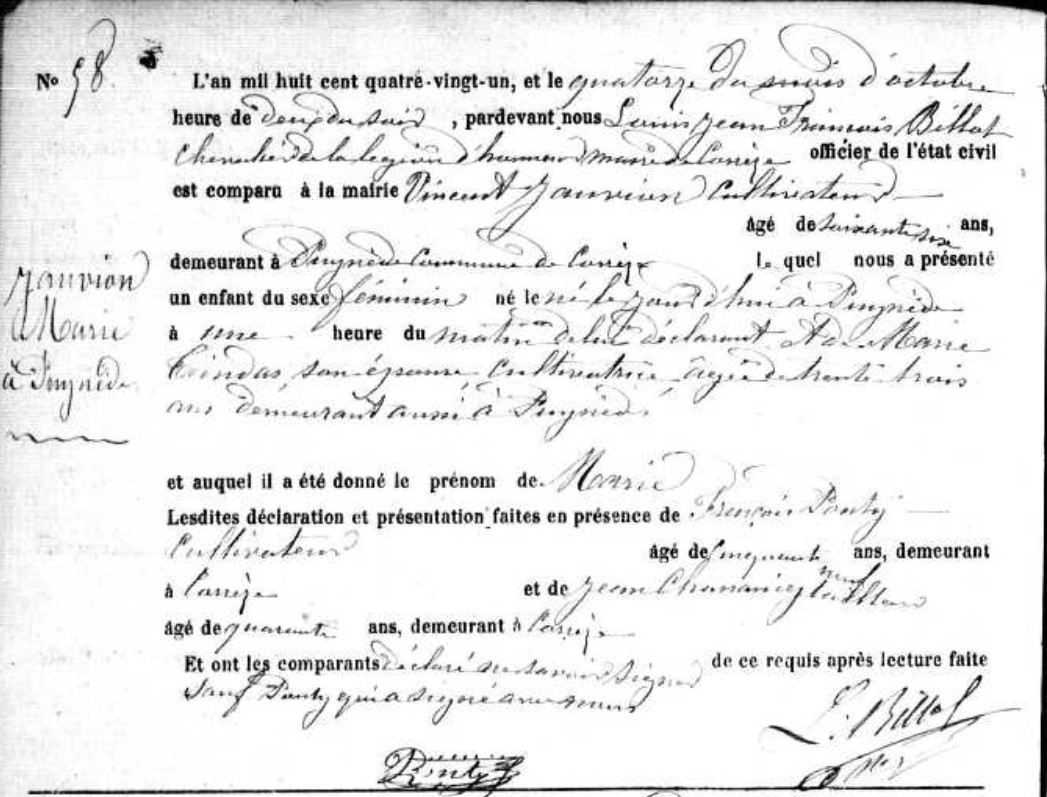 No 58.
L'an mil huit cent quatre-vingt-un, et le quatorze du mois d'octobre
heure de deux du soir, pardevant nous Louis Jean François Billot
chevalier de la legion d'honneur maire de Corrèze officier de l'état civil
est comparu à la mairie Vincent Janvion Cultivateur
âgé de soixante six ans,
demeurant à Puynède Commune de Corrèze lequel nous a présenté
un enfant du sexe féminin né le né le jour d'hui à Puynède
à une heure du matin de lui déclarant et de Marie
son épouse Cultivatrice âgée de trente trois
ans demeurant aussi à Puynède
Janvion
Marie
à Puynède
et auquel il a été donné le prénom de Marie
Lesdites déclaration et présentation faites en présence de François Ponty
Cultivateur âgé de Cinquante neuf ans, demeurant
à Corrèze et de Jean tailleur
âgé de quarante ans, demeurant à Corrèze
Et ont les comparants déclaré ne savoir signer de ce requis après lecture faite
Sauf Ponty qui a signé avec nous
L. Billot
Ponty